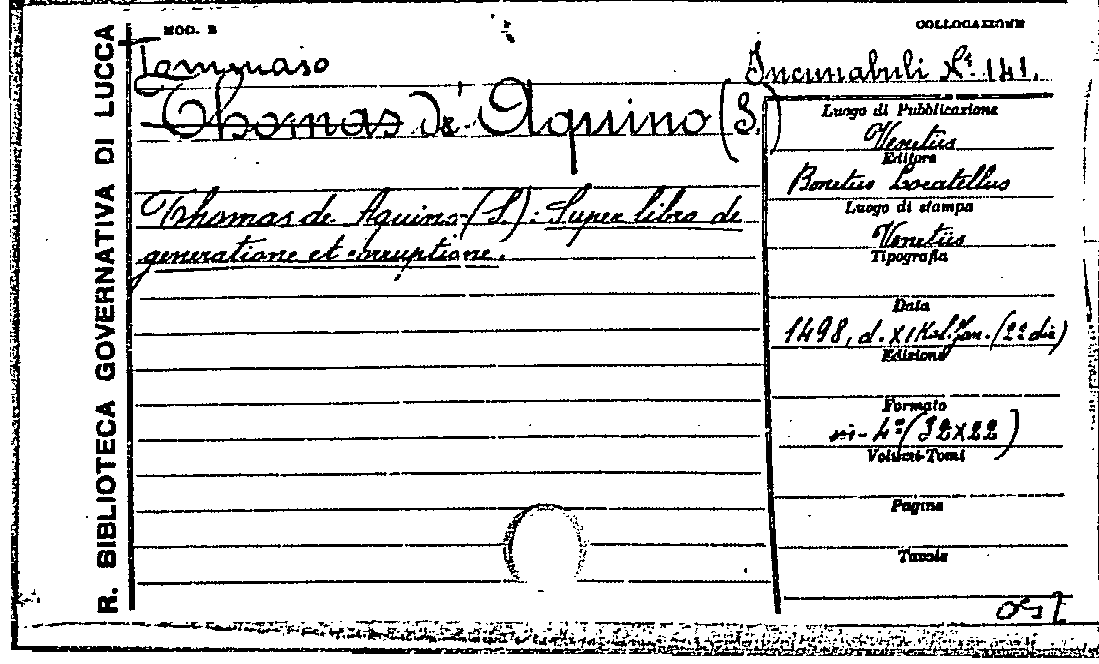 R. BIBLIOTECA GOVERNATIVA DI LUCCA
MOD. B
COLLOCAZIONE
Tommaso
Incunabuli N.º 141.
Thomas de Aquino (S.)
Thomas de Aquino (S.): Super libro de
generatione et corruptione.
Luogo di Pubblicazione
Venetiis
Editore
Bonetus Locatellus
Luogo di stampa
Venetiis
Tipografia
Data
1498, d. XI Kal. Jan. (22 dic)
Edizione
Formato
in-4º (32x22)
Volumi-Tomi
Pagine
Tavole